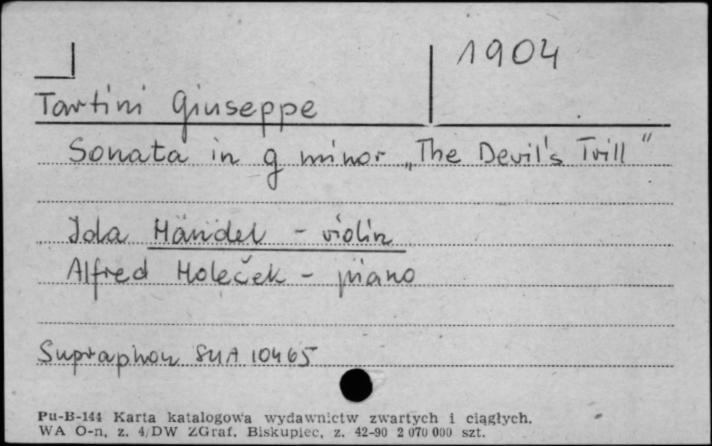 1904
Tartini Giuseppe
Sonata in g minor „The Devil's Trill"
Ida Händel - violin
Alfred Holeček - piano
Supraphon SUA 10465
Pu-B-144 Karta katalogowa wydawnictw zwartych i ciągłych.
WA O-n, z. 4/DW ZGraf. Biskupiec, z. 42-90 2 070 000 szt.